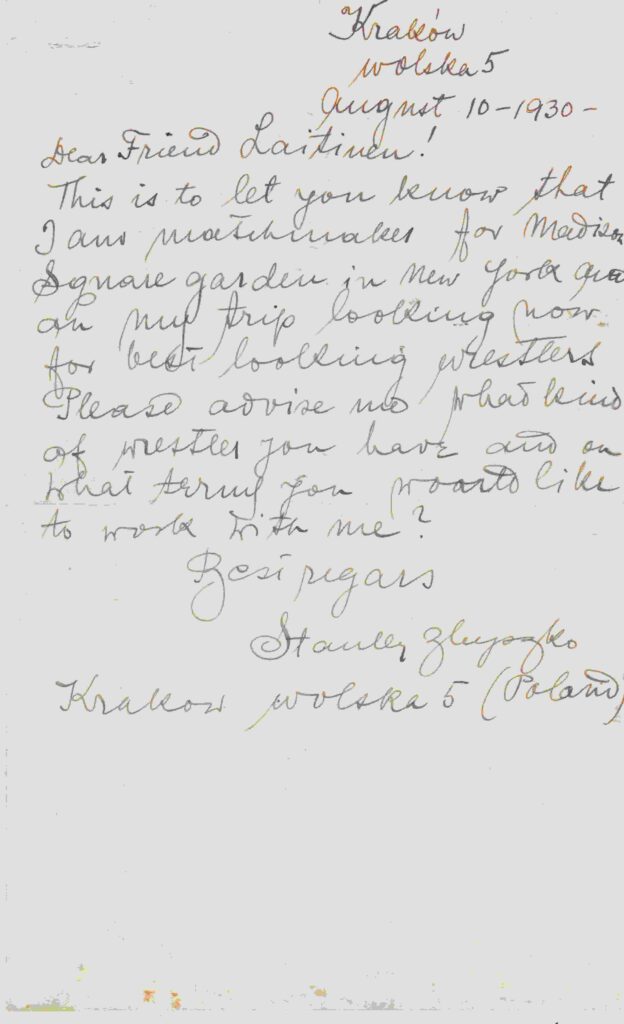 Kraków
Wolska 5
August 10-1930-
Dear Friend Laitinen!
This is to let you know that
I am matchmaker for Madison
Square garden in New York and
an my trip looking now
for best looking wrestlers
Please advise me what kind
of wrestler you have and on
what terms you would like
to work with me?
Best regars
Stanley Zbyszko
Krakow Wolska 5 (Poland)